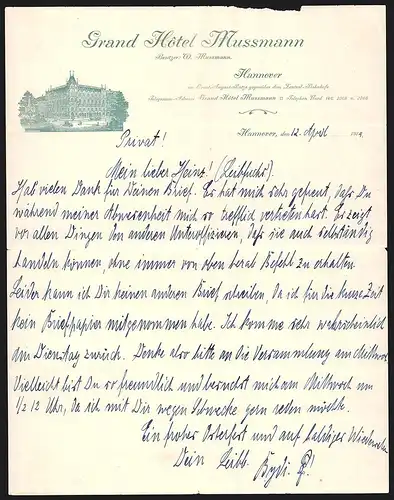 Grand Hôtel Mussmann
Besitzer: W. Mussmann.
Hannover
am Ernst-August-Platz gegenüber dem Zentral-Bahnhofe
Telegramm-Adresse: Grand Hôtel Mussmann
Hannover, den 12. April 19
Privat!
Mein lieber Heinz! (Leibfuchs).
Hab vielen Dank für Deinen Brief. Er hat mich sehr gefreut, dass Du
während meiner Abwesenheit mich so trefflich vertreten hast. Er zeigt
vor allen Dingen den anderen Unteroffizieren, dass sie auch selbständig
handeln können, ohne immer von oben herab Befehl zu erhalten.
Leider kann ich Dir keinen anderen Brief schreiben, da ich für die kurze Zeit
kein Briefpapier mitgenommen habe. Ich komme sehr wahrscheinlich
am Dienstag zurück. Denke also bitte an die Versammlung am Mittwoch.
Vielleicht bist Du so freundlich und besuchst mich am Mittwoch um
1/2 12 Uhr, da ich mit Dir wegen gern reden möchte.
Ein frohes Osterfest und auf baldiges Wiedersehn
Dein Leibb.